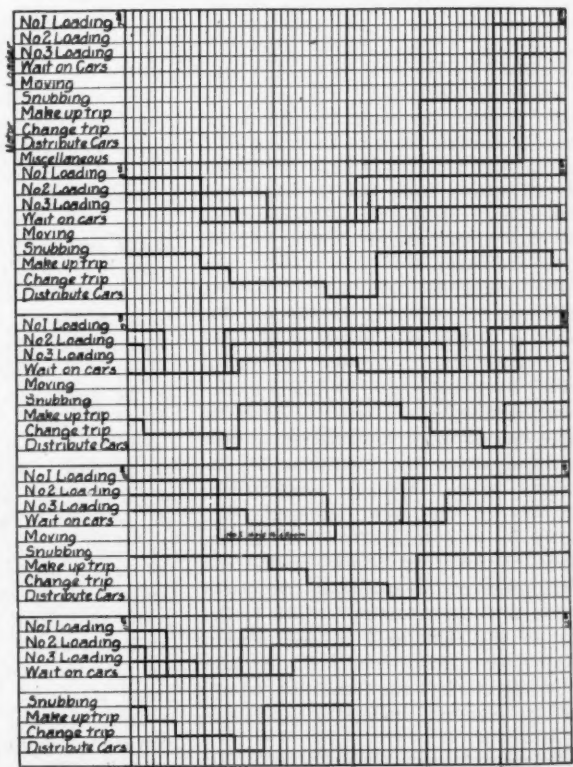 Loader
Motor
No1 Loading
No2 Loading
No3 Loading
Wait on Cars
Moving
Snubbing
Make up trip
Change trip
Distribute Cars
Miscellaneous
No1 Loading
No2 Loading
No3 Loading
Wait on cars
Moving
Snubbing
Make up trip
Change trip
Distribute Cars
No1 Loading
No2 Loading
No3 Loading
Wait on cars
Moving
Snubbing
Make up trip
Change trip
Distribute Cars
No1 Loading
No2 Loading
No3 Loading
Wait on cars
Moving
Snubbing
Make up trip
Change trip
Distribute Cars
No1 Loading
No2 Loading
No3 Loading
Wait on cars
Snubbing
Make up trip
Change trip
Distribute Cars